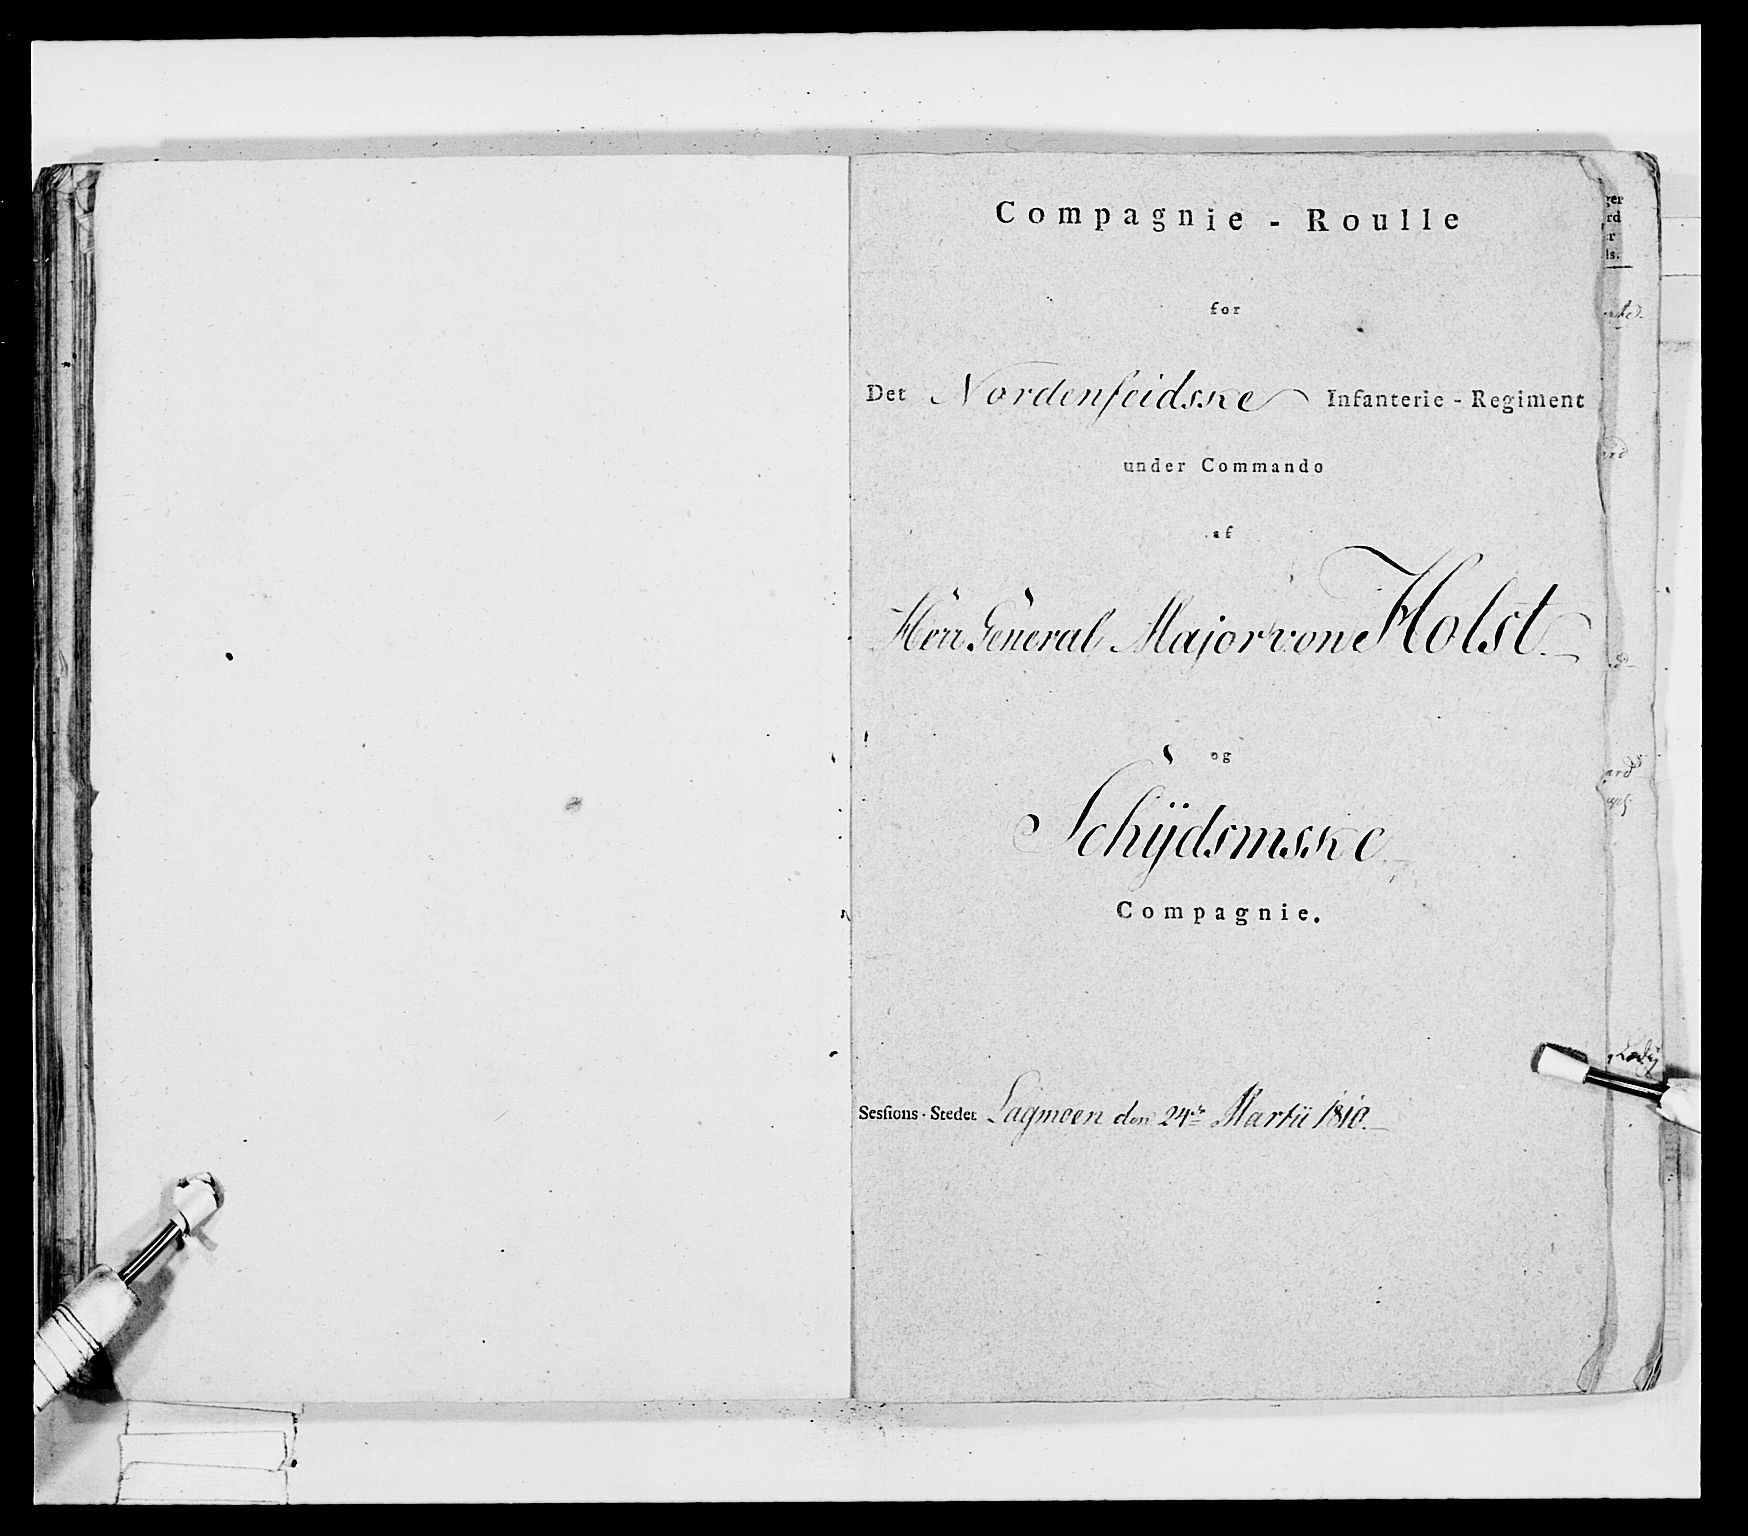 Compagnie - Roulle
for
Det Nordenfeidske Infanterie - Regiment
under Commando
af
Herr General Major von Holst.
og
Schÿdsmske
Compagnie.
Sesſions - Stedet Lagmoen den 24de Martii 1810.